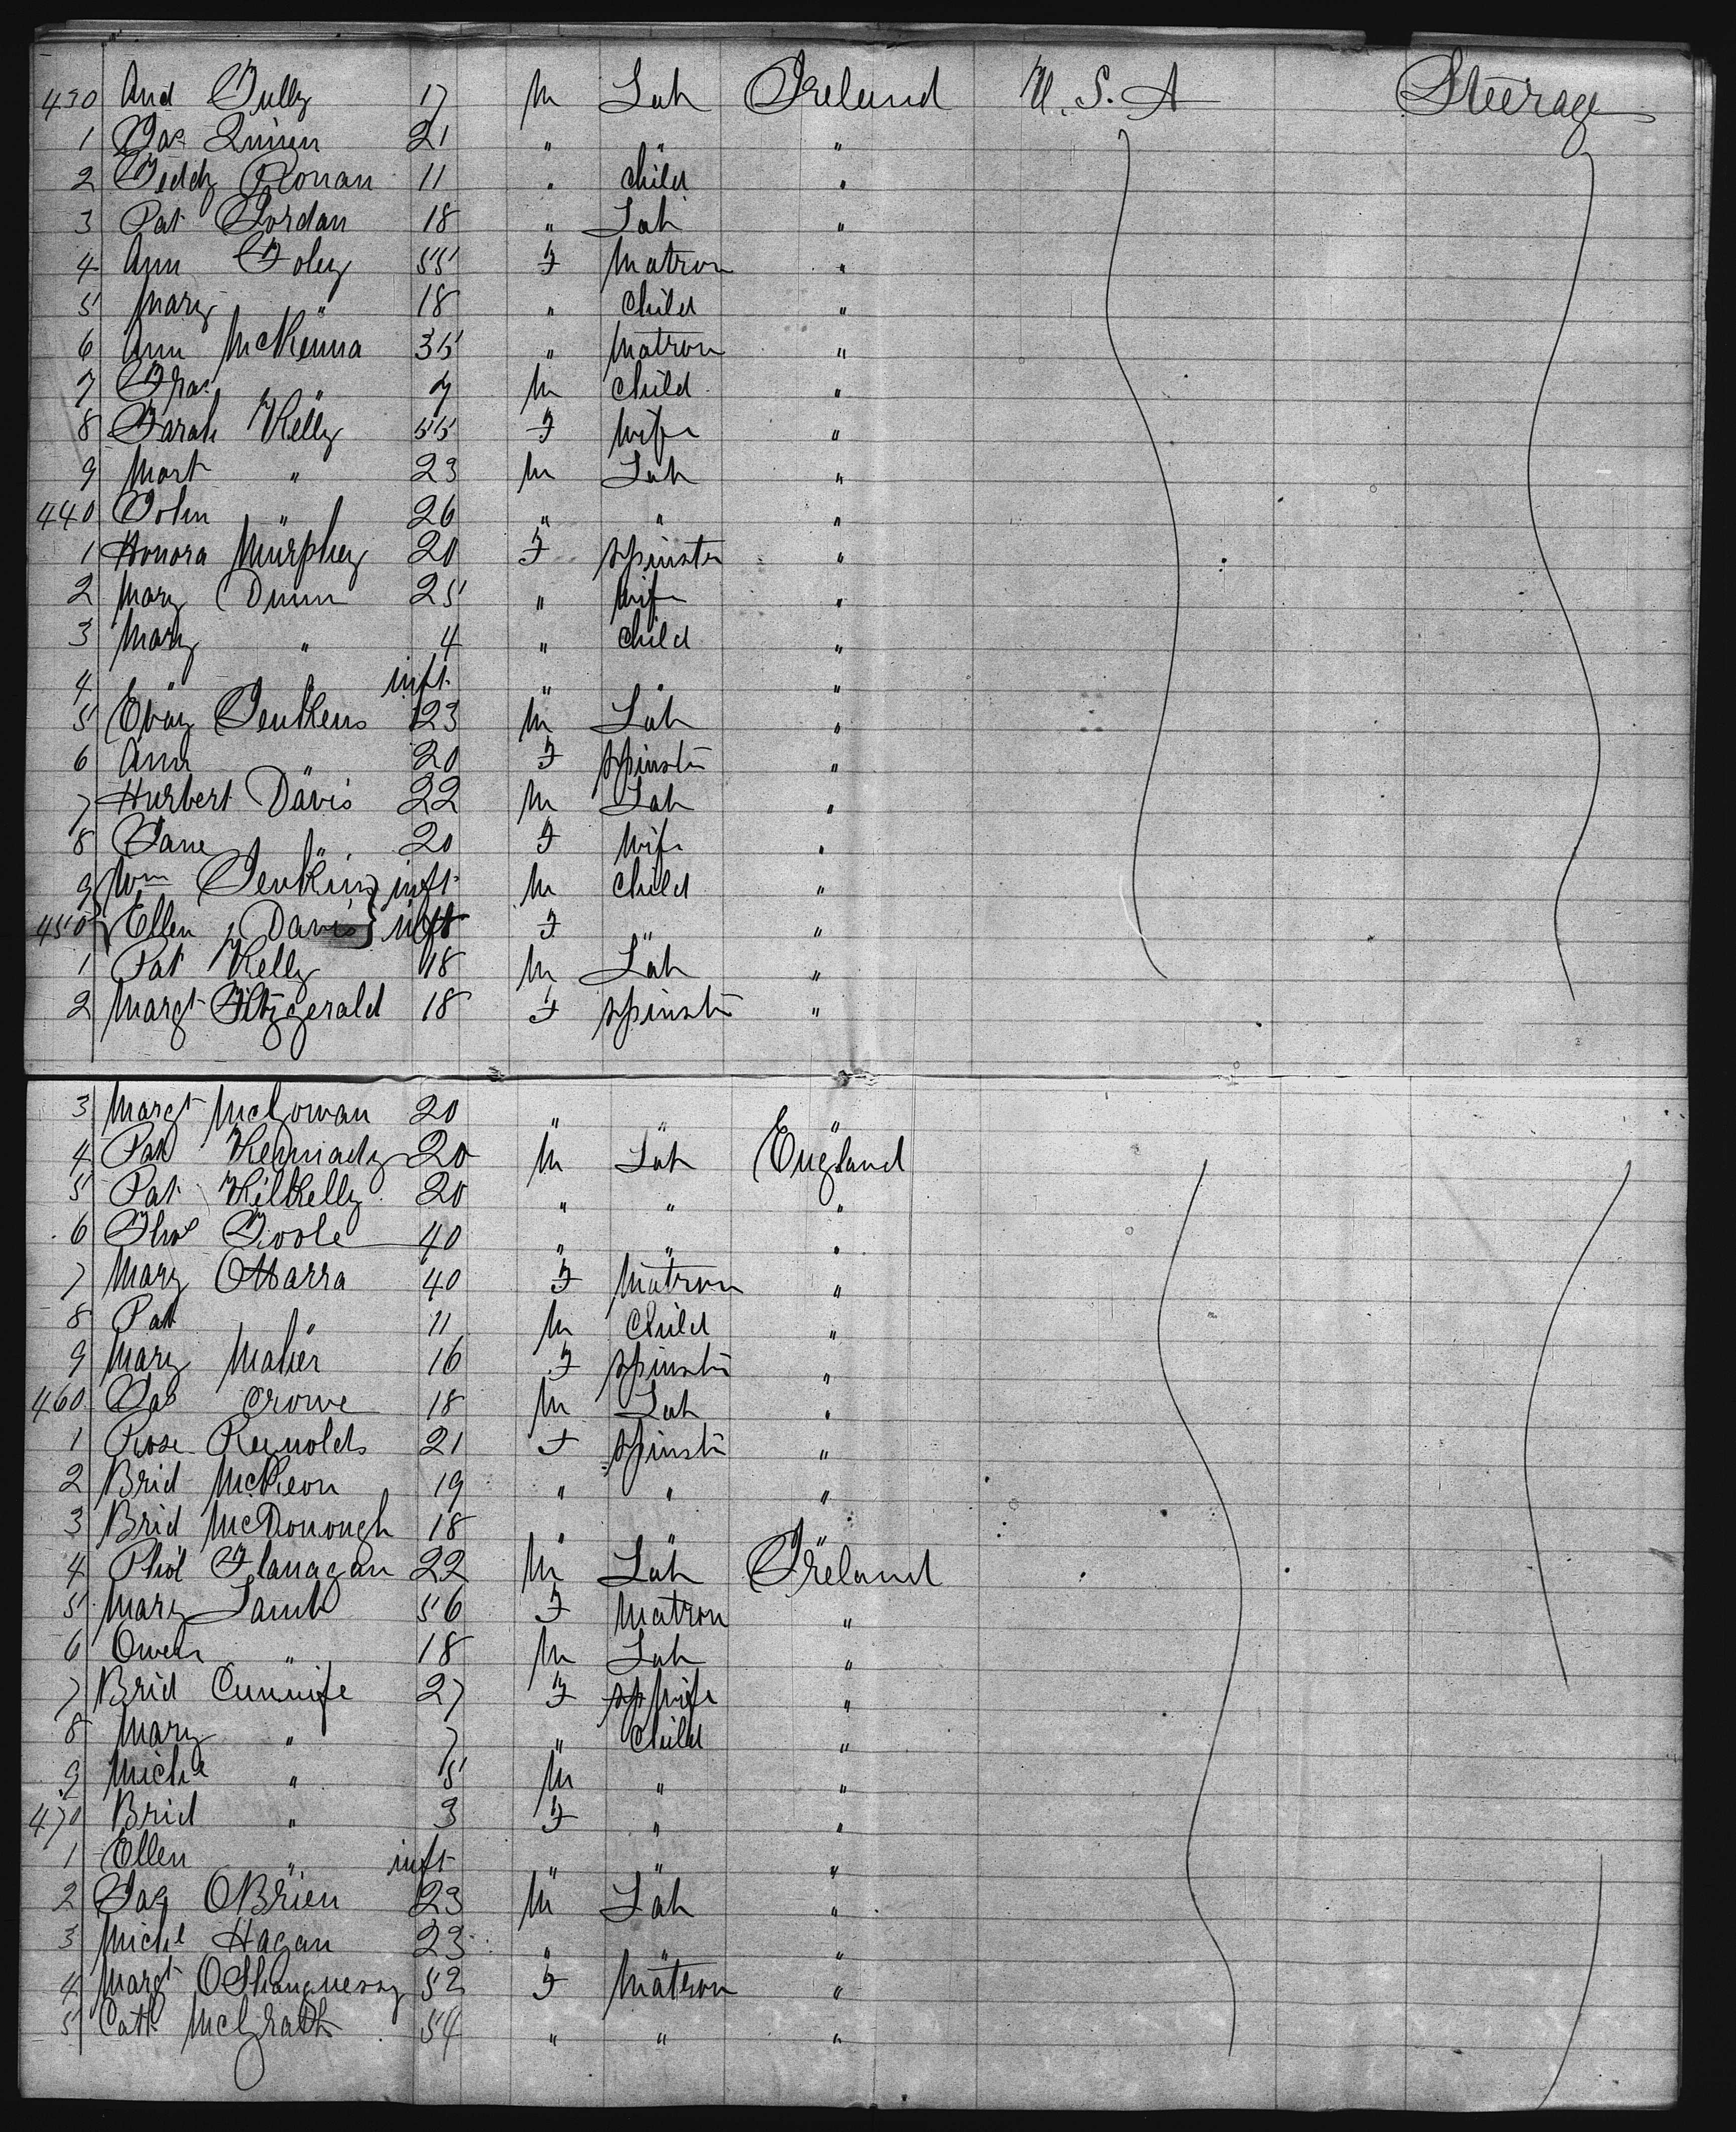 430 And Tully 17 M Lab Ireland U. S. A Steerage
1 Jas Quinn 21 " " "
2 Teddy Ronan 11 " Child "
3 Pat Jordan 18 " Lab "
4 Ann Foley 55 F Matron "
5 Mary " 18 " Child "
6 Ann McKenna 35 " Matron "
7 Fras " 7 M Child "
8 Sarah Kelly 55 F Wife "
9 Mart " 23 M Lab "
440 John " 26 " " "
1 Honora Murphy 20 F Spinstr "
2 Mary Dunn 25 " Wife "
3 Mary " 4 " Child "
4 " " inft " " "
5 Jenkens 23 M Lab "
6 Ann " 20 F Spinstr "
7 Hurbert Davis 22 M Lab "
8 Jane " 20 F Wife "
9 Wm Jenkins inft M Child "
450 Ellen Davis inft F " "
1 Pat Kelly 18 M Lab "
2 Margt Fitzgerald 18 F Spinstr "
3 Margt McGowan 20 " " "
4 Pat Kennady 20 M Lab England
5 Pat Kilkelly 20 " " "
6 Thos Toole 40 " " "
7 Mary OHarra 40 F Matron "
8 Pat " 11 M Child "
9 Mary Maher 16 F Spinstr "
460 Jas Crowe 18 M Lab "
1 Rose Reynolds 21 F Spinstr "
2 Brid McKeon 19 " " "
3 Brid McDonough 18 " " "
4 Flanagan 22 M Lab Ireland
5 Mary Lamb 56 F Matron "
6 Owen " 18 M Lab "
7 Brid Cunnife 27 F Wife "
8 Mary " 7 " Child "
9 Michl " 5 M " "
470 Brid " 3 F " "
1 Ellen " inft " " "
2 Jas OBrien 23 M Lab "
3 Michl Hagan 23 " " "
4 Margt OShaugnessy 52 F Matron "
5 Cath McGrath 54 " " "